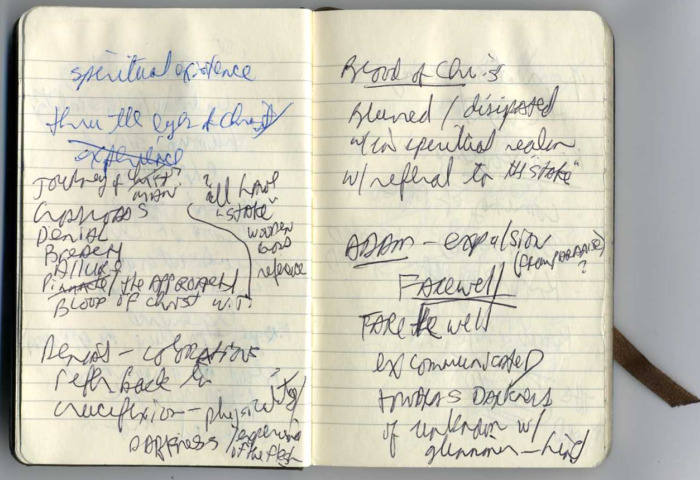 spiritual existence
thru the eyes of Christ
experience
Journey of
man?
Crossroads
Denial
Breach
Allure
/ the Approach
Blood of Christ
? all have
"stake"
wooden
refer back to
crucifixion - physicality/
Darkness / experience
of the flesh
Blood of Christ
Blurred / disipated
w/in speritual realm
w/ referal to "stake"
ADAM - expulsion
(from paradise)
?
Farewell
Fare the well
excommunicated
towards Darkness
of unknown w/
glimmer - hind